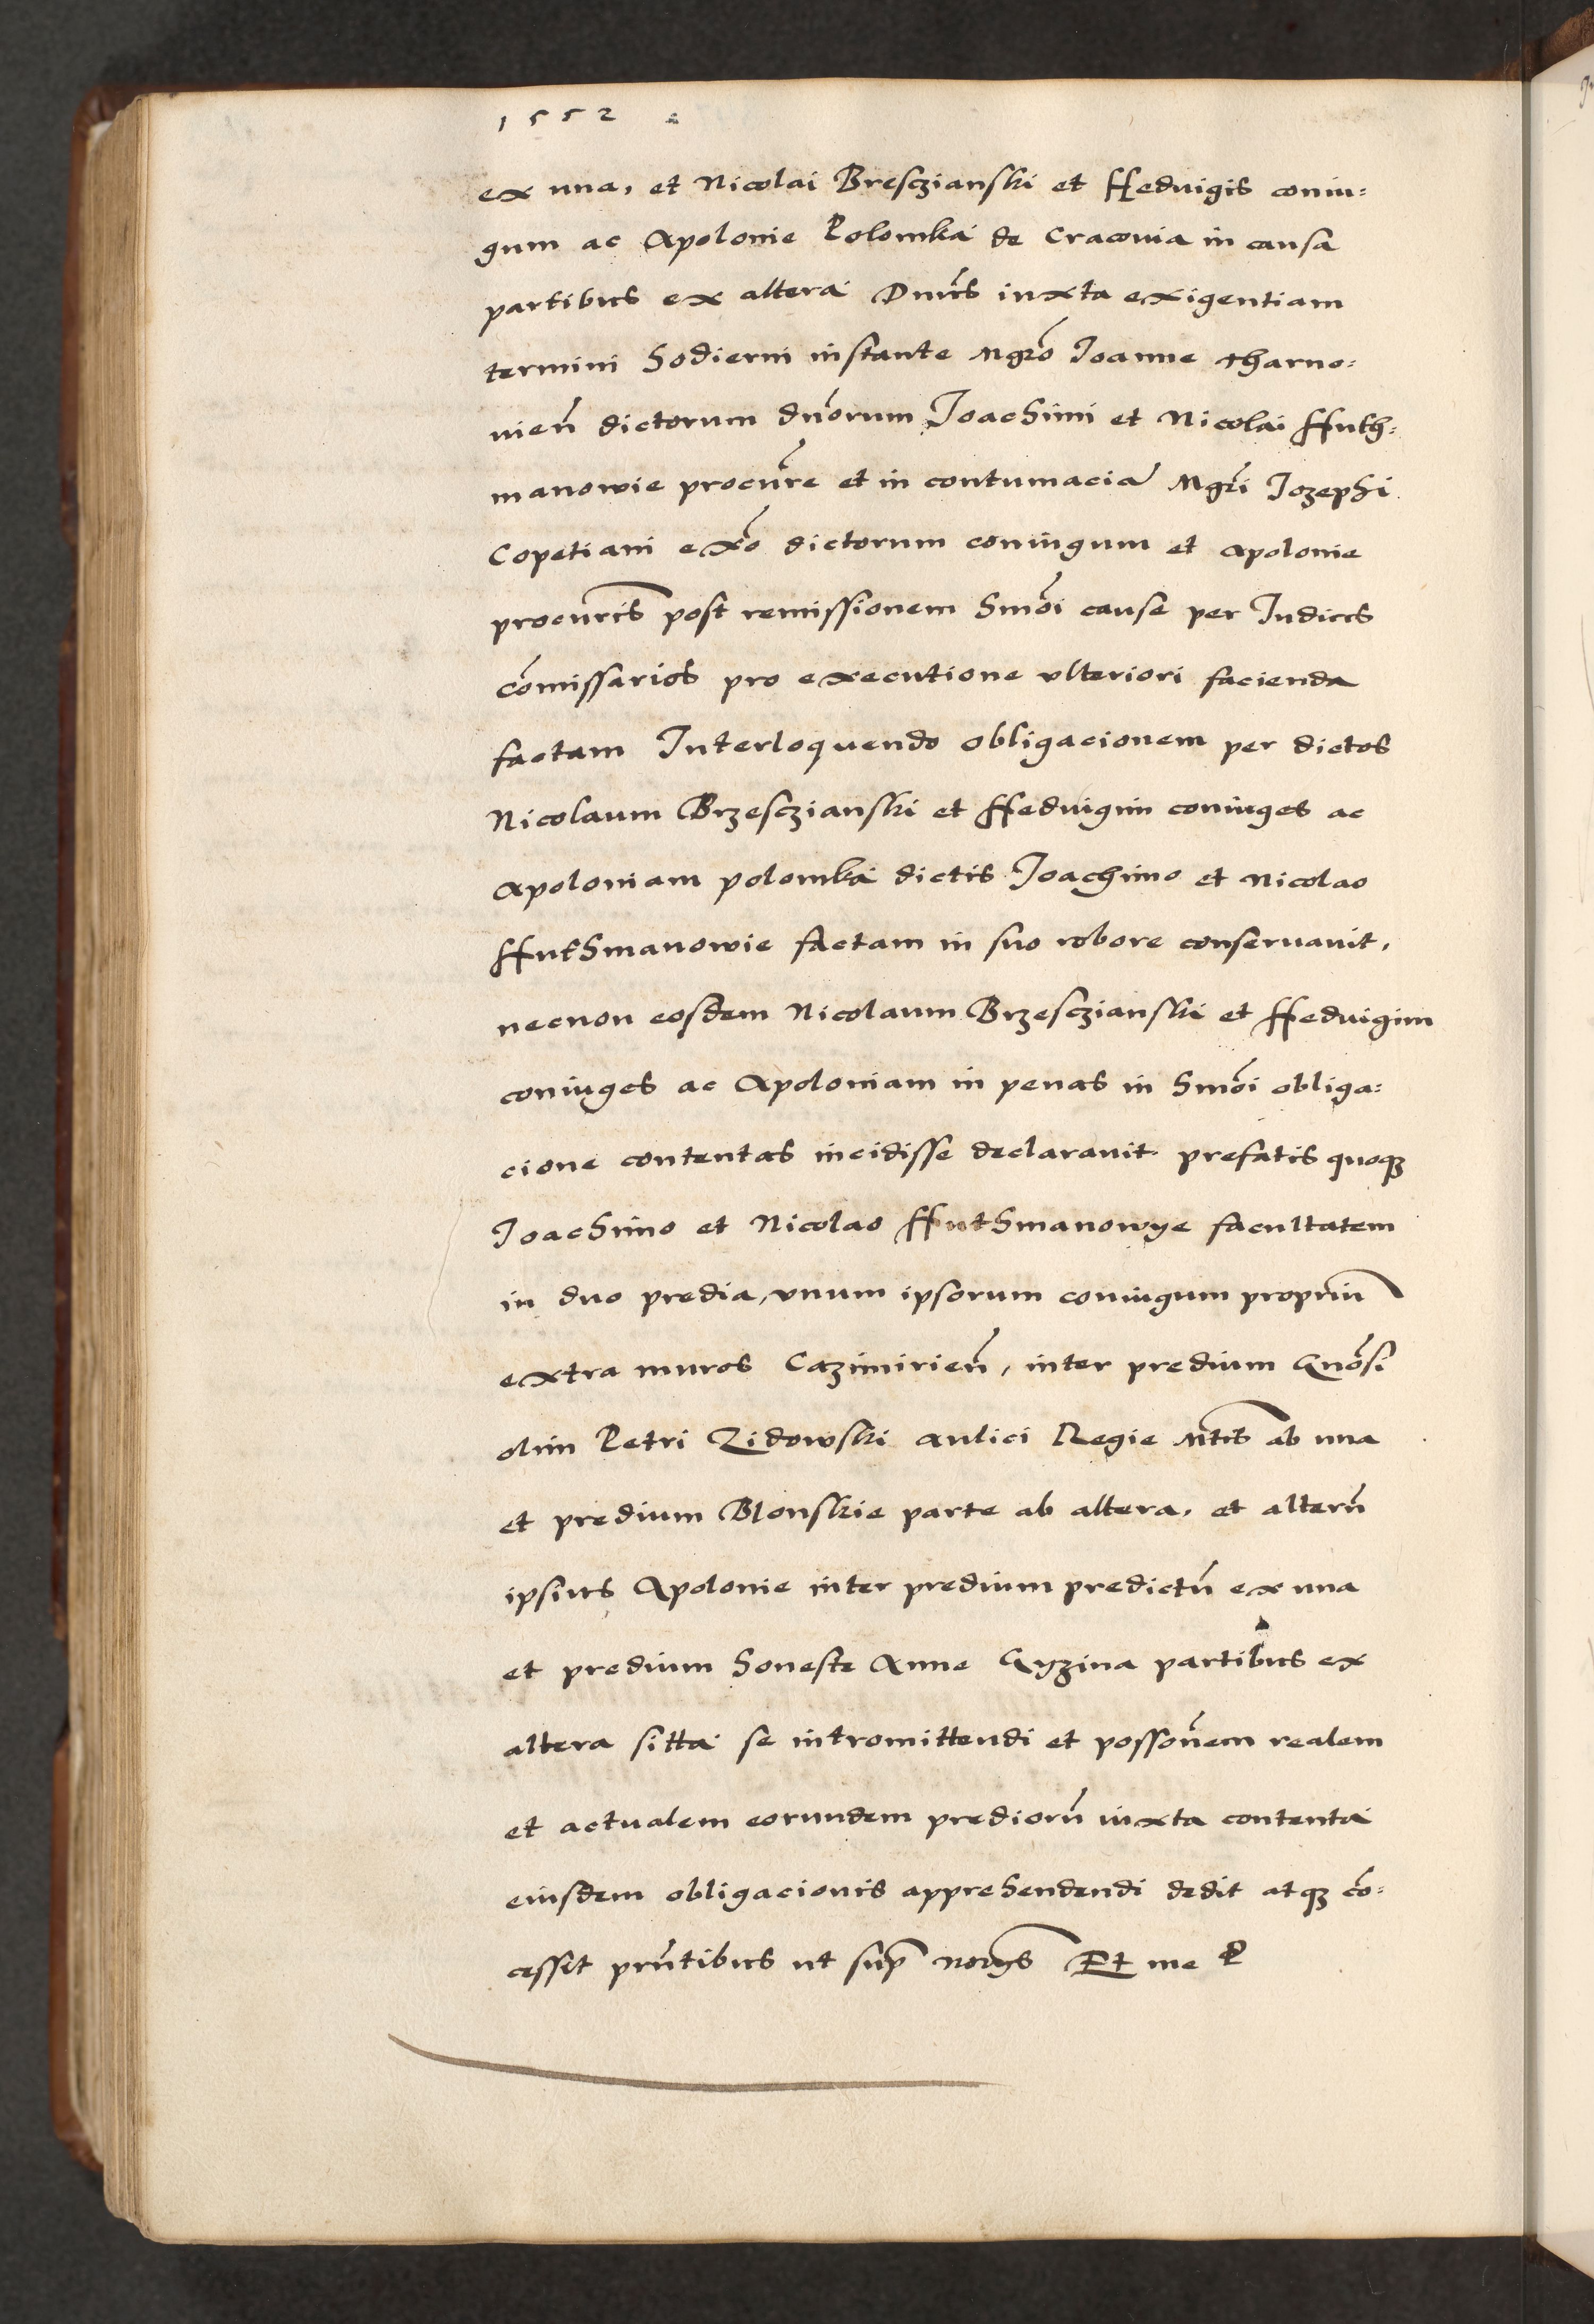 1552
ex una, et Nicolai Bresczianski et Heduigis coniu=
gum ac Apolonie Polomka de Cracouia in causa
partibus ex altera Dnus iuxta exigentiam
termini hodierni instante Mgro Ioanne Tharno=
uien dictorum dnorum Ioachimi et Nicolai Huth=
manowie procure et in contumacia Mgri Iozephi
Copetiani ex° dictorum coniugum et Apolonie
procuris post remissionem hmoi cause per Iudices
comissarios pro executione ulteriori facienda
factam Interloquendo obligacionem per dictos
Nicolaum Brzesczianski et Heduigim coniuges ac
Apoloniam polomka dictis Ioachimo et Nicolao
Huthmanowie factam in suo robore conseruauit,
necnon eosdem Nicolaum Brzesczianski et Heduigim
coniuges ac Apoloniam in penas in hmoi obliga=
cione contentas incidisse declarauit. prefatis quoq3
Ioachimo et Nicolao Huthmanowye facultatem
in duo predia, unum ipsorum coniugum propriu
extra muros Cazimirien, inter predium Gnosi
olim Petri Zidowski aulici Regie Mtis ab una
et predium Blonskie parte ab altera, et alteru
ipsius Apolonie inter predium predictu ex una
et predium honeste Anne Gyzina partibus ex
altera sitta se intromittendi et possonem realem
et actualem eorundem predioru iuxta contenta
eiusdem obligacionis apprehendendi dedit atq3 co=
cessit pntibus ut sup notys Et me P